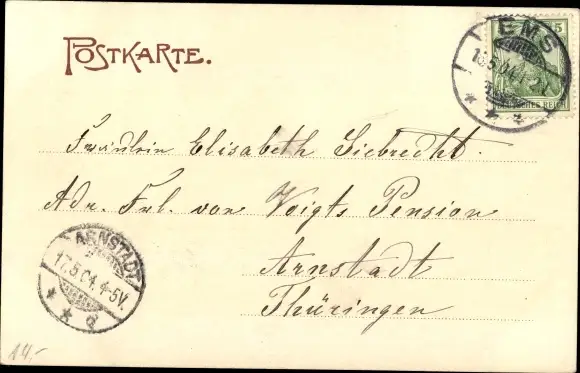 POSTKARTE.
EMS
5
DEUTSCHES REICH
Fräulein Elisabeth Siebrecht.
Adr. Frl. von Voigts Pension
Arnstadt
Thüringen
ARNSTADT
17.5.04. 4-5V.
14.-